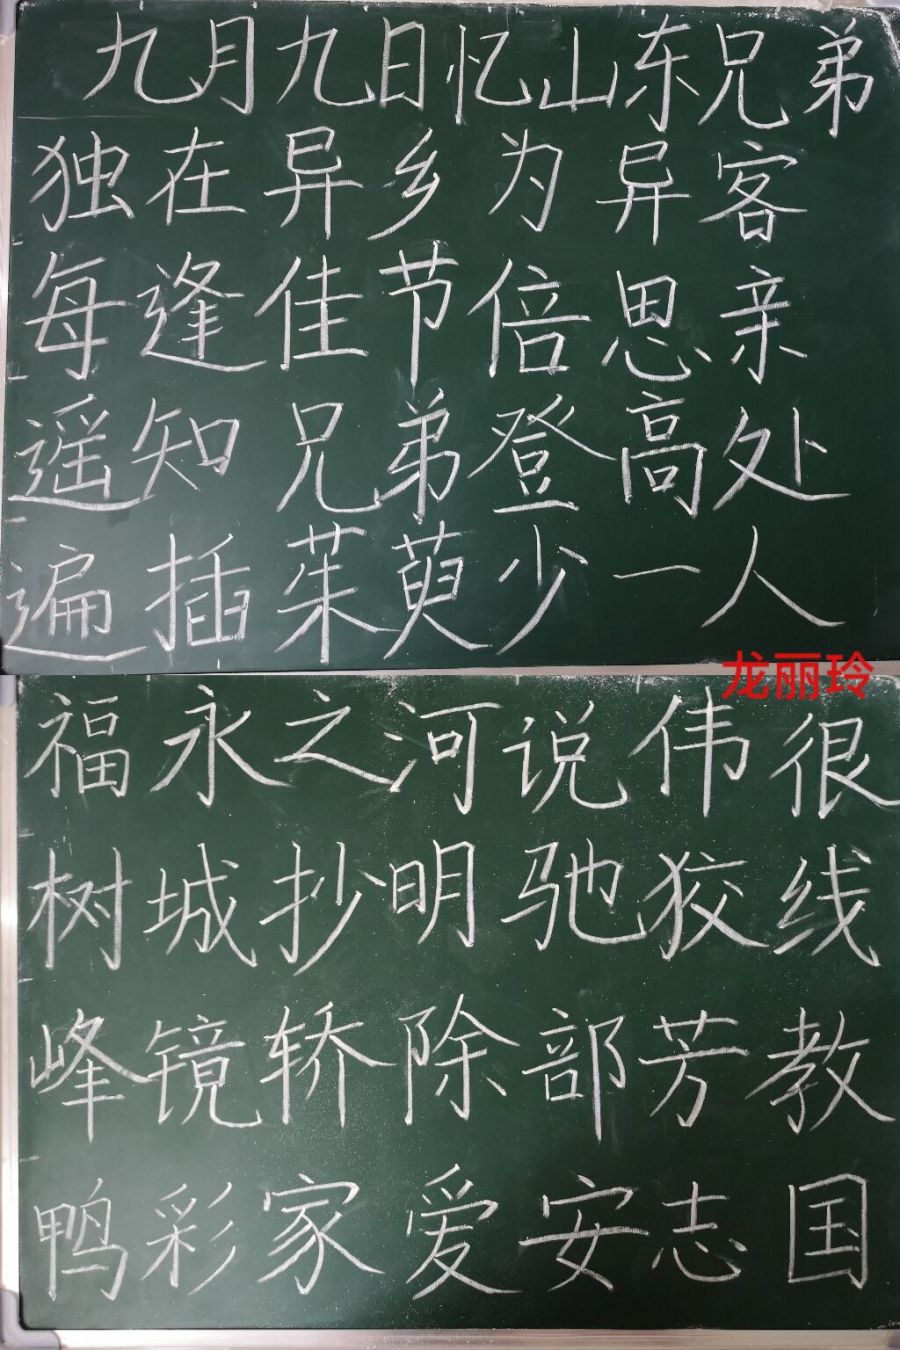 九月九日忆山东兄弟
独在异乡为异客
每逢佳节倍思亲
遥知兄弟登高处
遍插茱萸少一人
龙丽玲
福永之河说伟很
树城抄明驰狡线
峰镜轿除部芳教
鸭彩家爱安志国